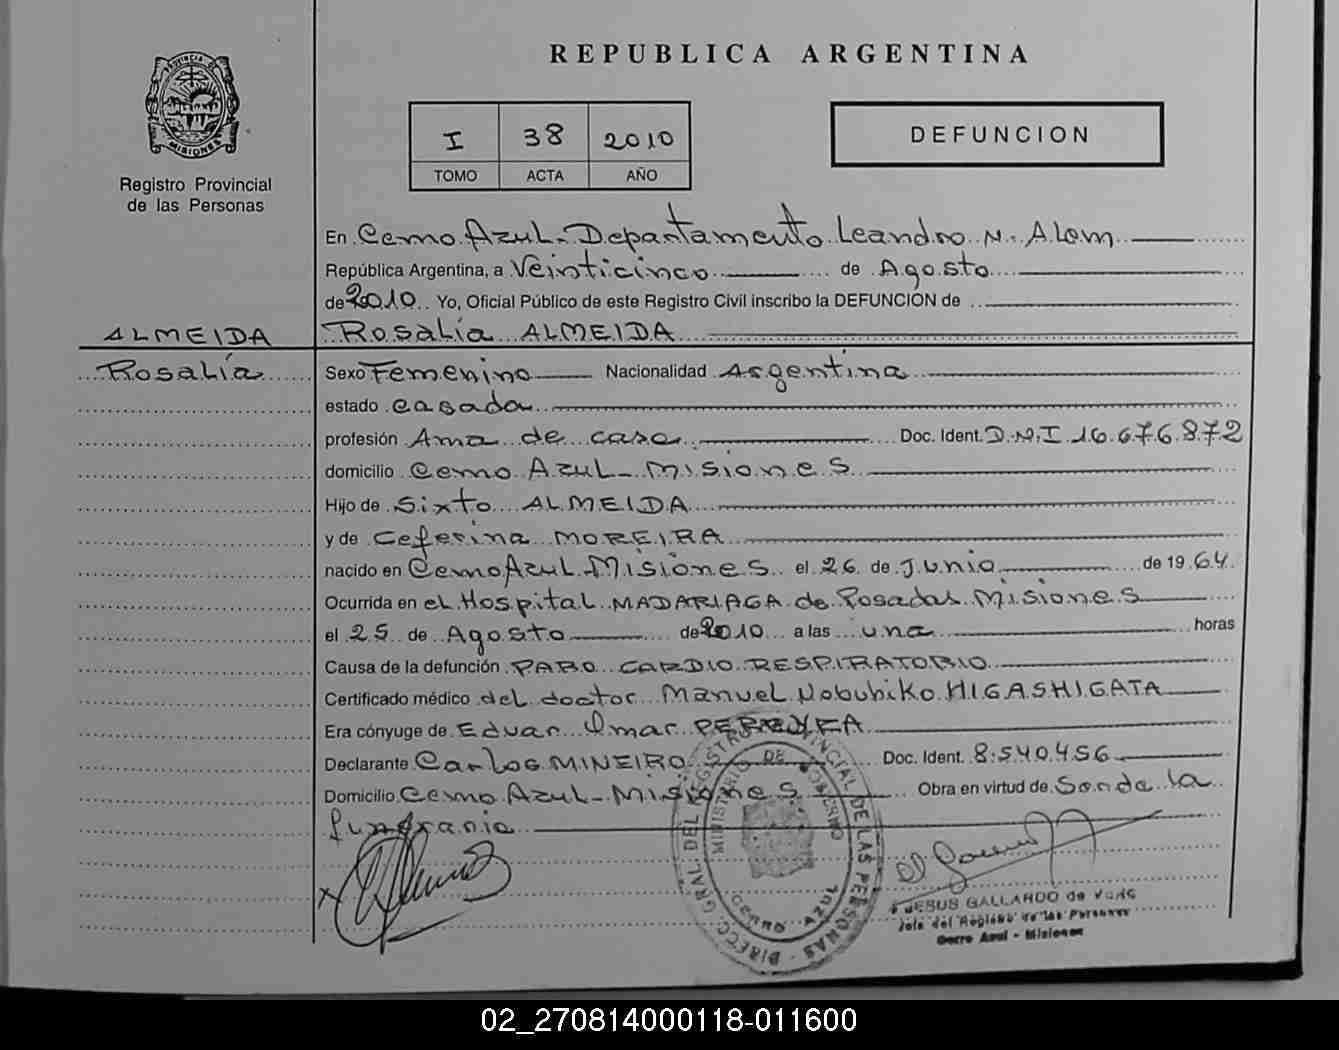 REPUBLICA ARGENTINA
PROVINCIA DE
MISIONES
Registro Provincial
de las Personas
I 38 2010
TOMO ACTA AÑO
DEFUNCION
En Cerro Azul. Departamento Leandro N. Alem
República Argentina, a Veinticinco de Agosto
de 2010 Yo, Oficial Público de este Registro Civil inscribo la DEFUNCION de
ALMEIDA
Rosalía
Rosalía ALMEIDA
Sexo Femenino Nacionalidad Argentina
estado casada
profesión Ama de casa Doc. Ident. D.N.I 16.676.872
domicilio Cerro Azul - Misiones
Hijo de Sixto ALMEIDA
y de Ceferina MOREIRA
nacido en Cerro Azul Misiones el 26 de Junio de 1964.
Ocurrida en el Hospital MADARIAGA de Posadas Misiones
el 25 de Agosto de 2010 a las una horas
Causa de la defunción PARO CARDIO RESPIRATORIO
Certificado médico del doctor Manuel Nobuhiko HIGASHIGATA
Era cónyuge de Eduar Omar PEREYRA
Declarante Carlos MINEIRO Doc. Ident. 8.540.456
Domicilio Cerro Azul - Misiones Obra en virtud de Ser de la
funeraria
DIRECC. GRAL. DEL REGISTRO PROVINCIAL DE LAS PERSONAS
MINISTERIO DE GOBIERNO
CERRO AZUL
JESUS GALLARDO de
Jefe del Registro de las Personas
Cerro Azul - Misiones
02_270814000118-011600